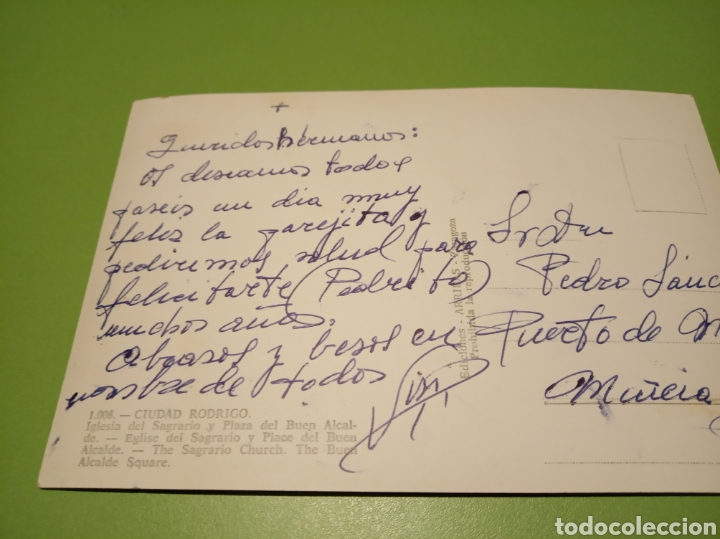 +
Queridos hermanos:
os deseamos todos
paseis un dia muy
feliz la parejita y
pediremos salud para
felicitarte (Pedrito)
muchos años.
Abrazos y besos en
nombre de todos
1.008. — CIUDAD RODRIGO.
Iglesia del Sagrario y Plaza del Buen Alcal-
de. — Eglise del Sagrario y Place del Buen
Alcalde. — The Sagrario Church. The Buen
Alcalde Square.
Ediciones ARRIBAS - Zaragoza
Prohibida la reproducción
Sr. Don
Pedro Sánc
Puerto de M
Murcia
todocoleccion